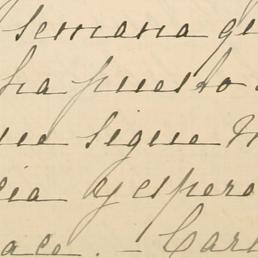 semana qu
ha puesto
ue sigue m
cia y espero
ace. - Car